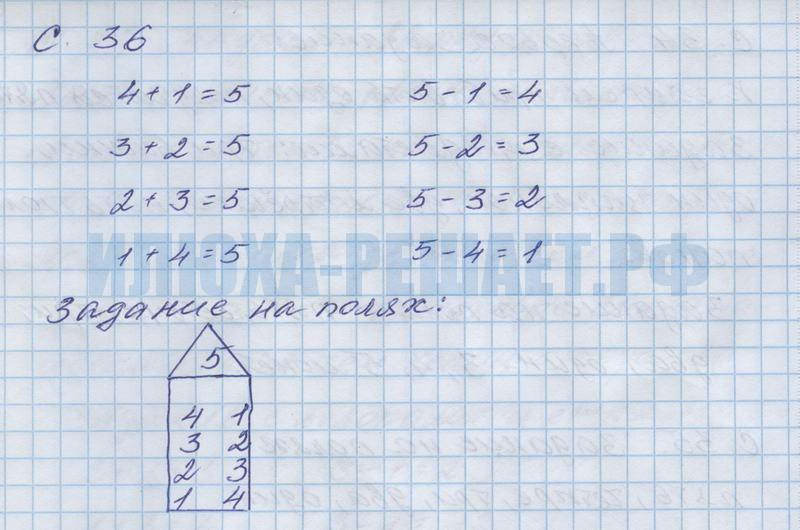 С. 36
4 + 1 = 5 5 - 1 = 4
3 + 2 = 5 5 - 2 = 3
2 + 3 = 5 5 - 3 = 2
1 + 4 = 5 5 - 4 = 1
ИЛЮХА-РЕШАЕТ.РФ
Задание на полях:
5
4 1
3 2
2 3
1 4